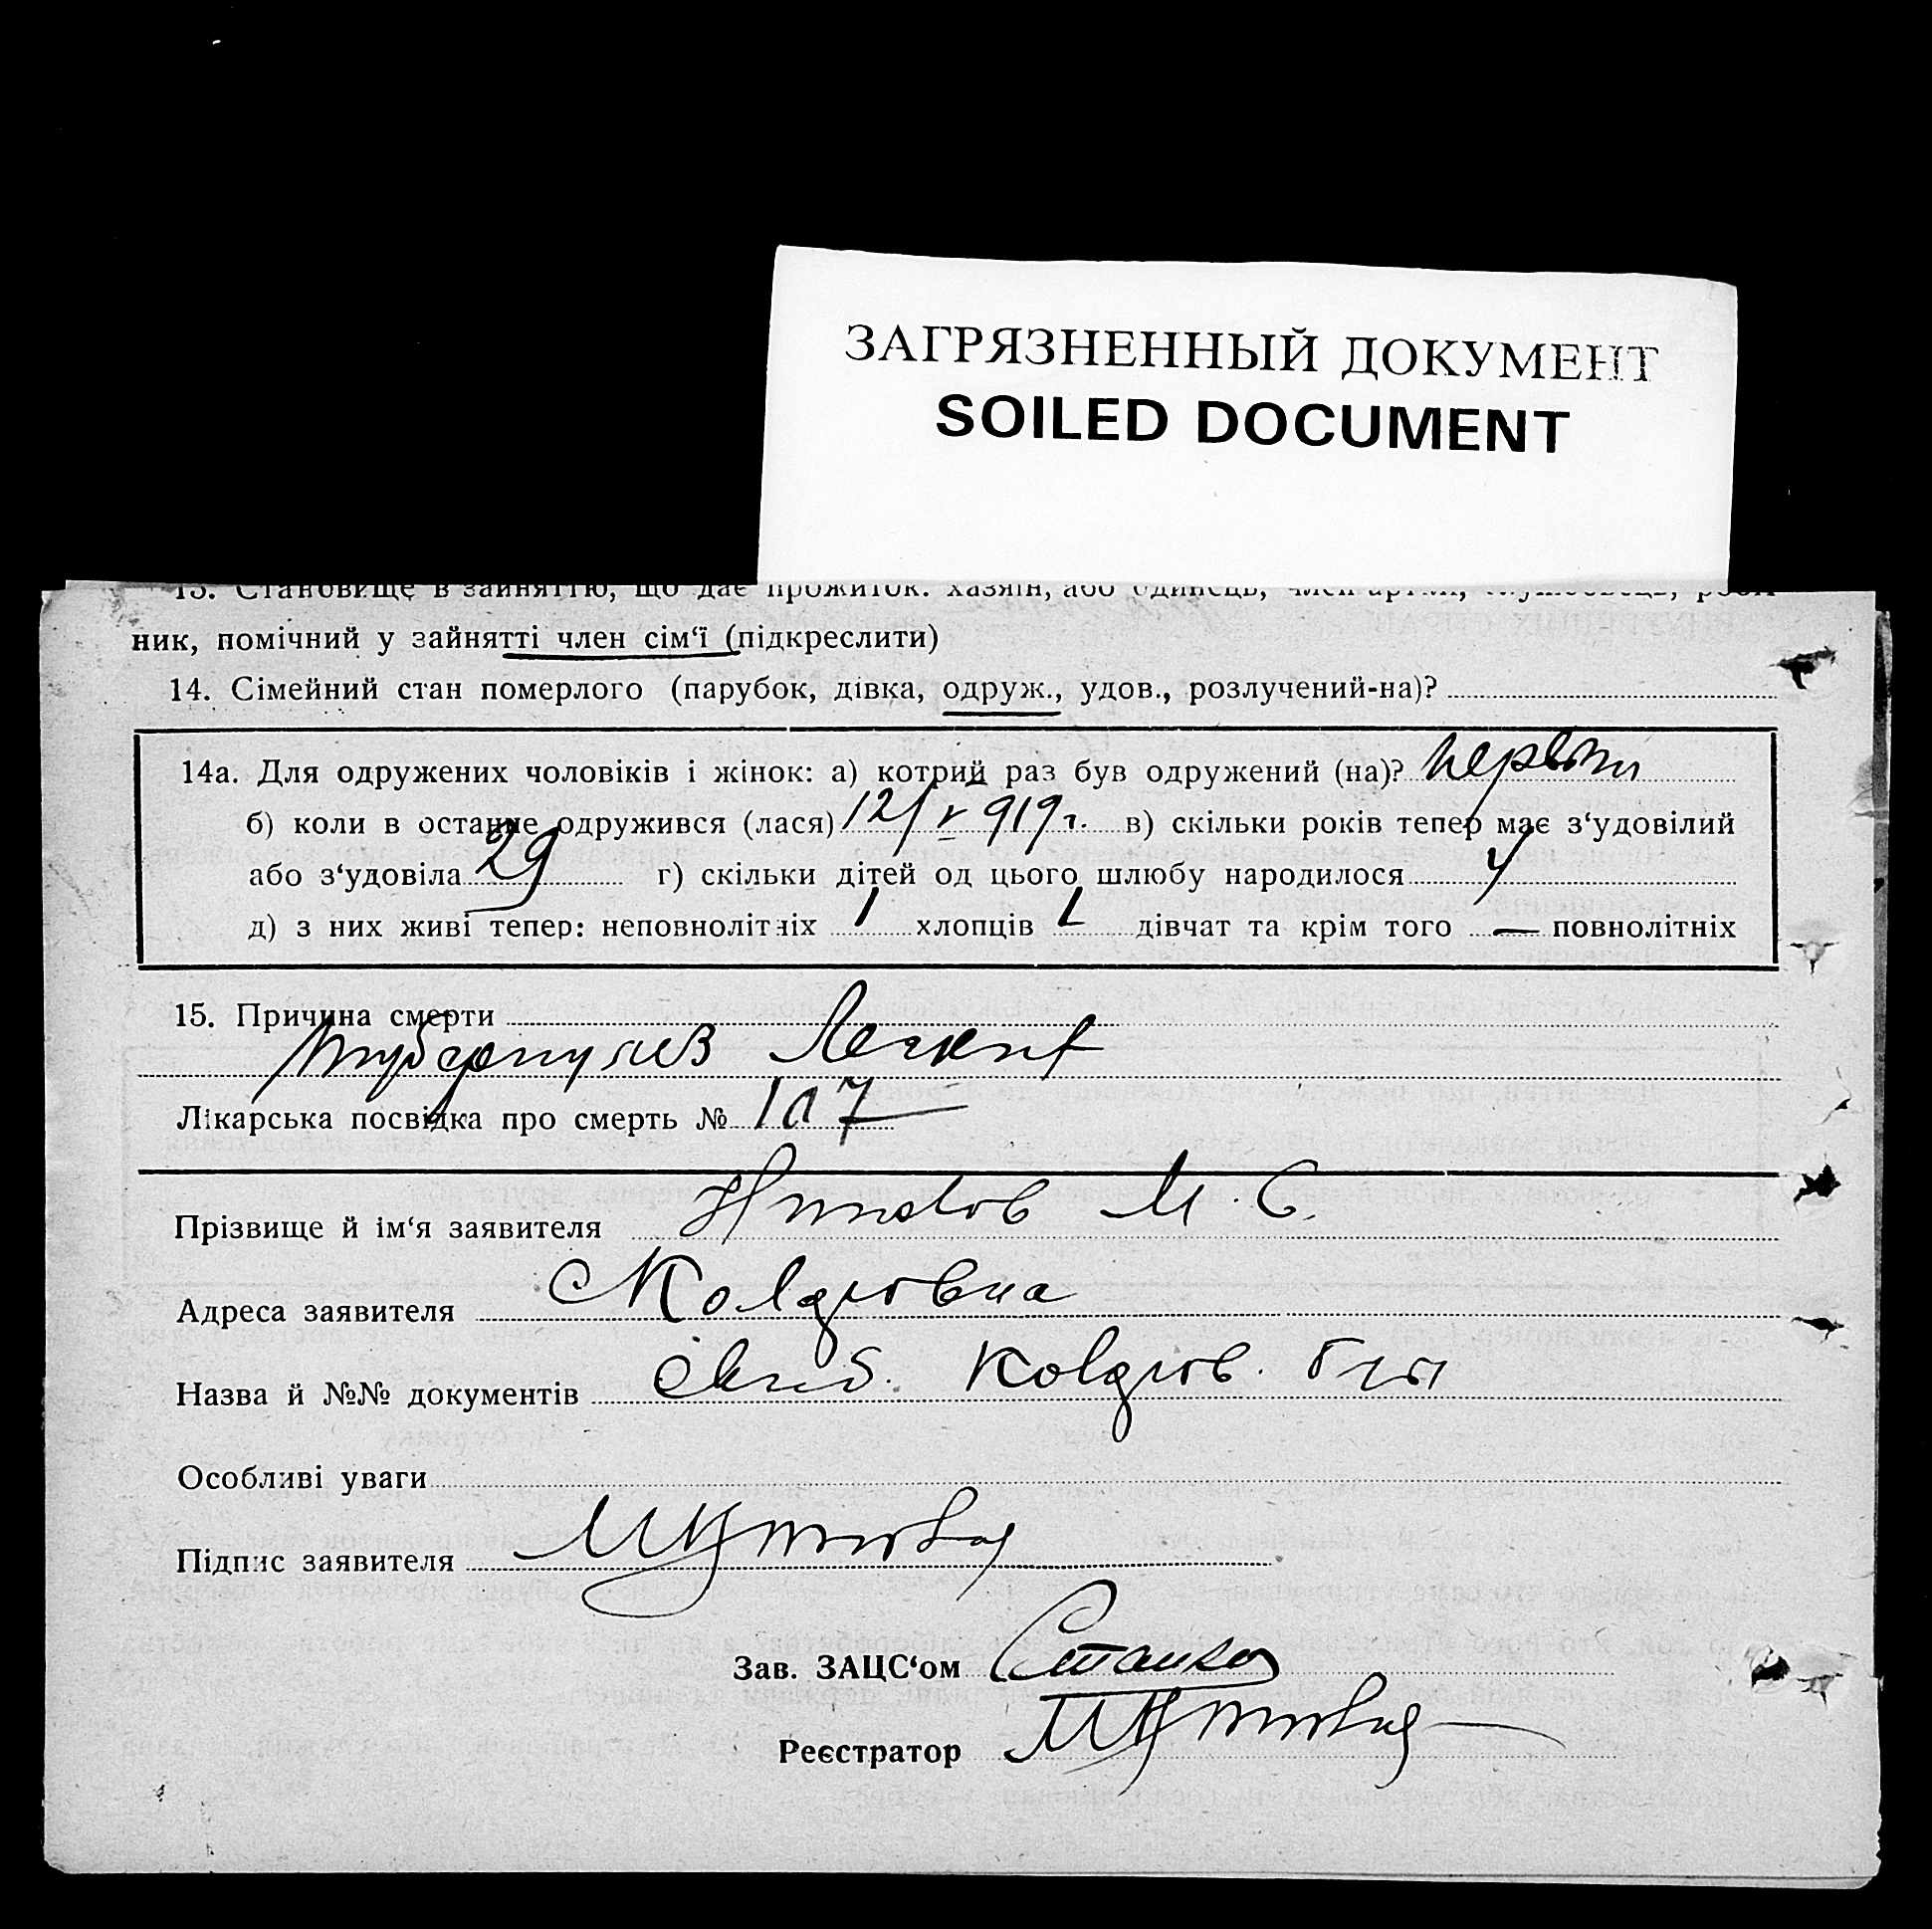 ЗАГРЯЗНЕННЫЙ ДОКУМЕНТ
SOILED DOCUMENT
13. Становище в зайняттю, що дає прожиток: хазяїн, або одинець, член артілі, службовець, робіт-
ник, помічний у зайнятті член сім‘ї (підкреслити)
14. Сімейний стан померлого (парубок, дівка, одруж., удов., розлучений-на)?
14а. Для одружених чоловіків і жінок: а) котрий раз був одружений (на)? первый
б) коли в останне одружився (лася) 12/V 919 г. в) скільки років тепер має з‘удовілий
або з‘удовіла 29 г) скільки дітей од цього шлюбу народилося 4
д) з них живі тепер: неповнолітніх 1 хлопців 1 дівчат та крім того — повнолітніх
15. Причина смерти
туберкулез Легких
Лікарська посвідка про смерть № 107
Прізвище й ім‘я заявителя М. С.
Адреса заявителя
Назва й №№ документів
Особливі уваги
Підпис заявителя
Зав. ЗАЦС‘ом
Реєстратор